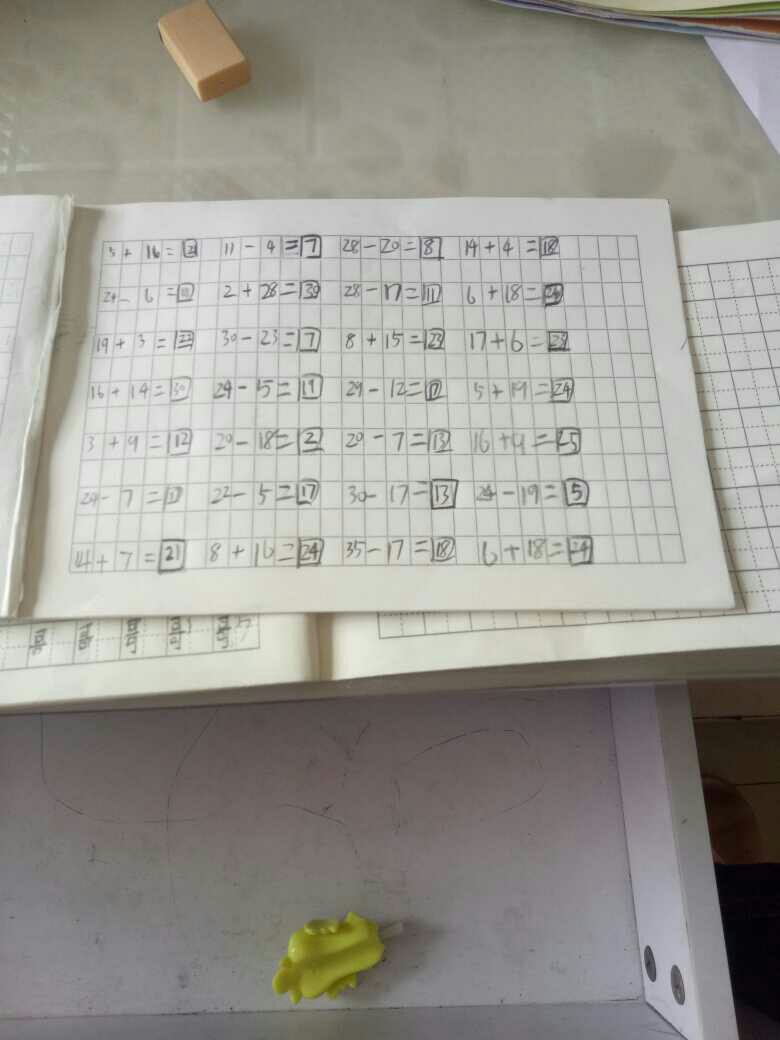 3 + 16 = 11 - 4 = 7 28 - 20 = 8 14 + 4 = 18
6 = 2 + 28 = 30 28 - 17 = 11 6 + 18 =
19 + 3 = 22 30 - 23 = 7 8 + 15 = 23 17 + 6 = 23
16 + 14 = 30 24 - 15 = 29 - 12 = 5 + 19 = 24
3 + 9 = 12 20 - 18 = 2 20 - 7 = 13 16 + 9 = 25
- 7 = 22 - 5 = 17 30 - 17 = 13 24 - 19 = 5
14 + 7 = 21 8 + 16 = 24 35 - 17 = 18 6 + 18 = 24